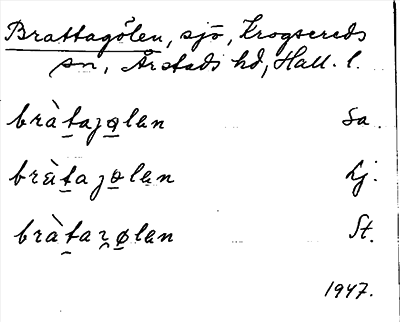 Brattagölen, sjö, Krogsereds
sn, Årstads hd, Hall. l.
bràtajølen Sa.
bràtajølen Lj.
bràtaȥølen St.
1947.